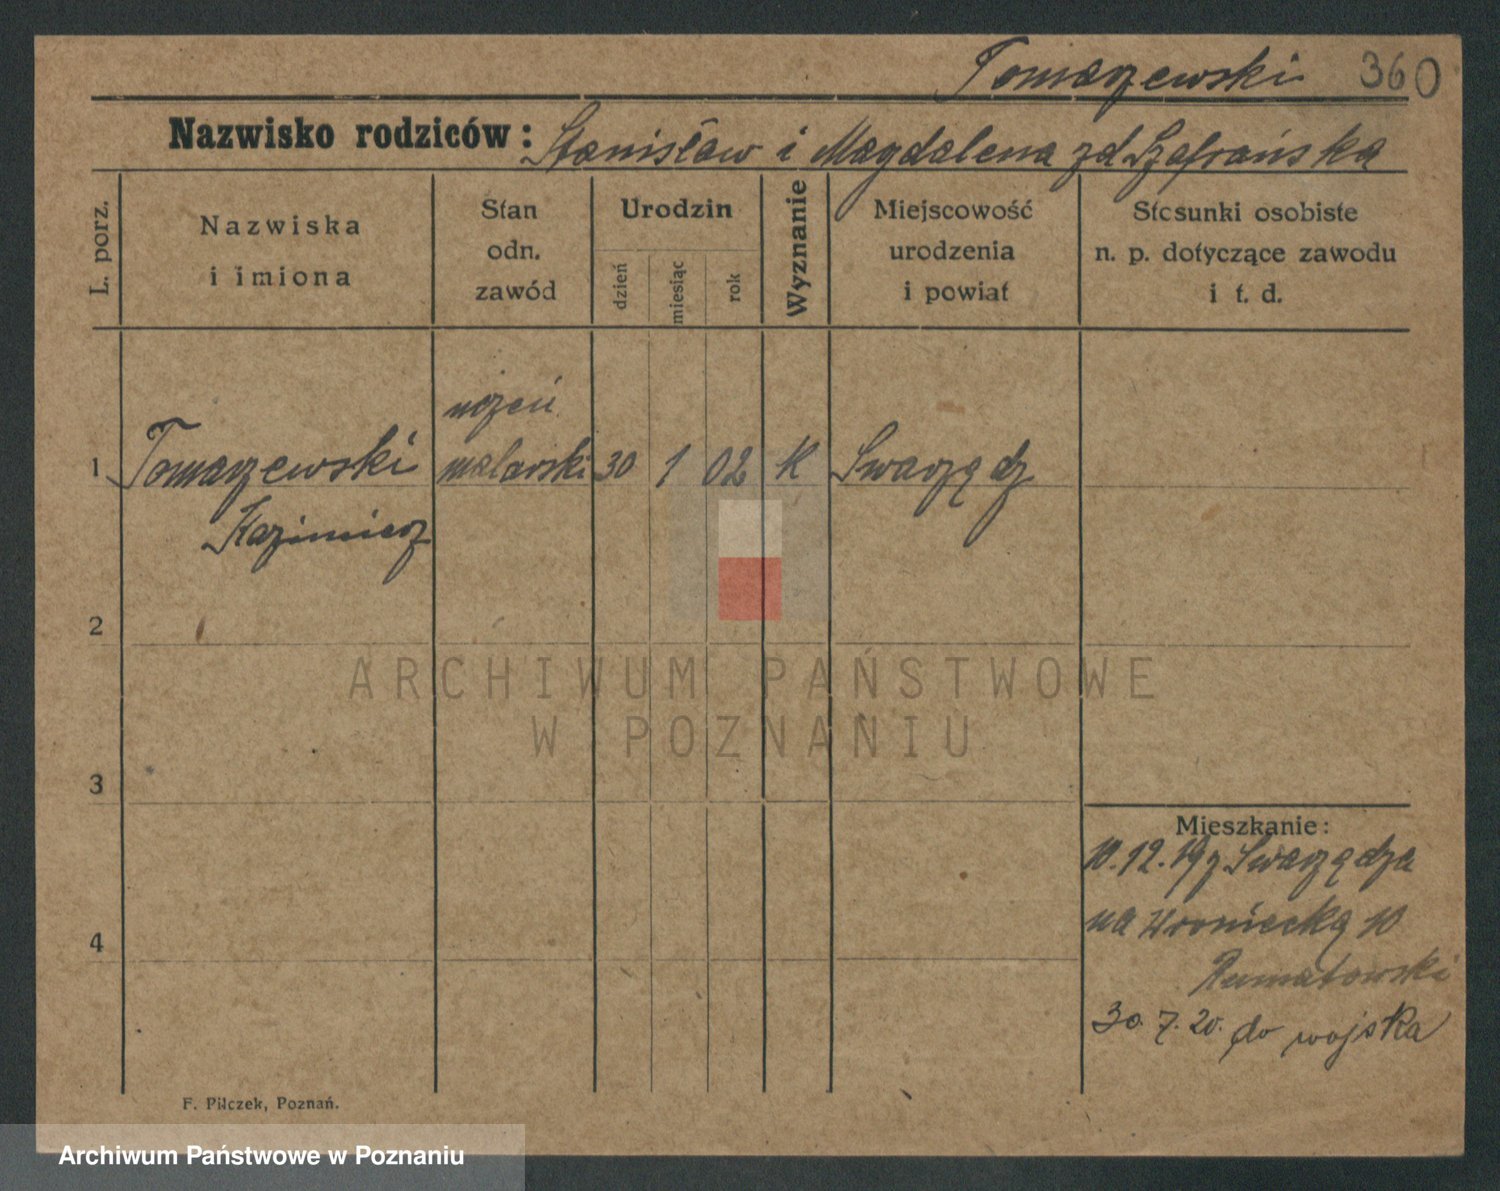 Tomaszewski 360
Nazwisko rodziców: Stanisław i Magdalena zd Szafrańska
L. porz.
Nazwiska
i imiona
Stan
odn.
zawód
Urodzin
dzień
miesiąc
rok
Wyznanie
Miejscowość
urodzenia
i powiat
Stosunki osobiste
n. p. dotyczące zawodu
i t. d.
uczeń
1 Tomaszewski malarski 30 1 02 K Swarzędz
Kazimierz
2
3
4
Mieszkanie:
10.12.19 z Swarzędza
na Wroniecką 10
30.7.20. do wojska
F. Pilczek, Poznań.
ARCHIWUM PAŃSTWOWE
W POZNANIU
Archiwum Państwowe w Poznaniu